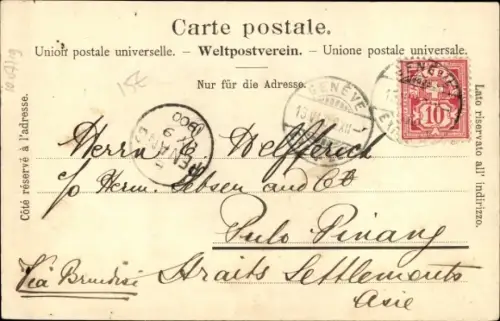 Carte postale.
Union postale universelle. – Weltpostverein. – Unione postale universale.
Nur für die Adresse.
Côté réservé à l'adresse.
Lato riservato all' indirizzo.
15€
GENÈVE
10
PENANG
1900
Herrn Helfferich
c/o Herrn. Jebsen and Co
Pulo Pinang
Via Brindisi Straits Settlements
Asie